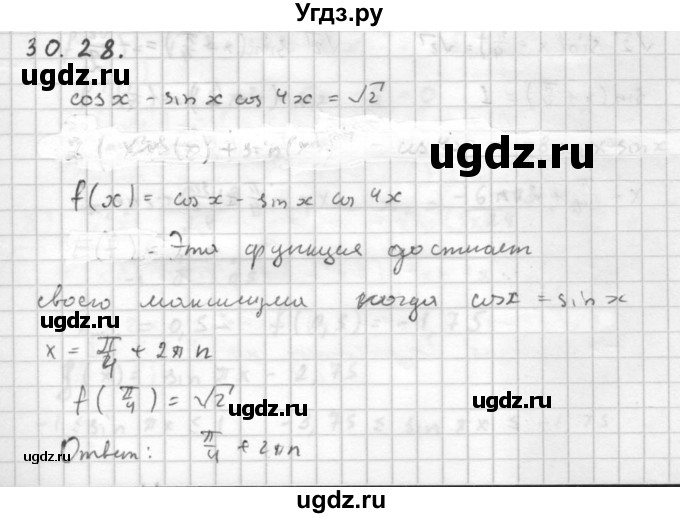 Угдз.ру
30.28.
ugdz.ru ugdz.ru
cos x - sin x cos 4x = √2
ugdz.ru
f(x) = cos x - sin x cos 4x
Эта функция достигает
своего максимума когда cos x = sin x
ugdz.ru
x = π/4 + 2πn
ugdz.ru
f(π/4) = √2
ugdz.ru
Ответ: π/4 + 2πn
ugdz.ru ugdz.ru ugdz.ru
ugdz.ru